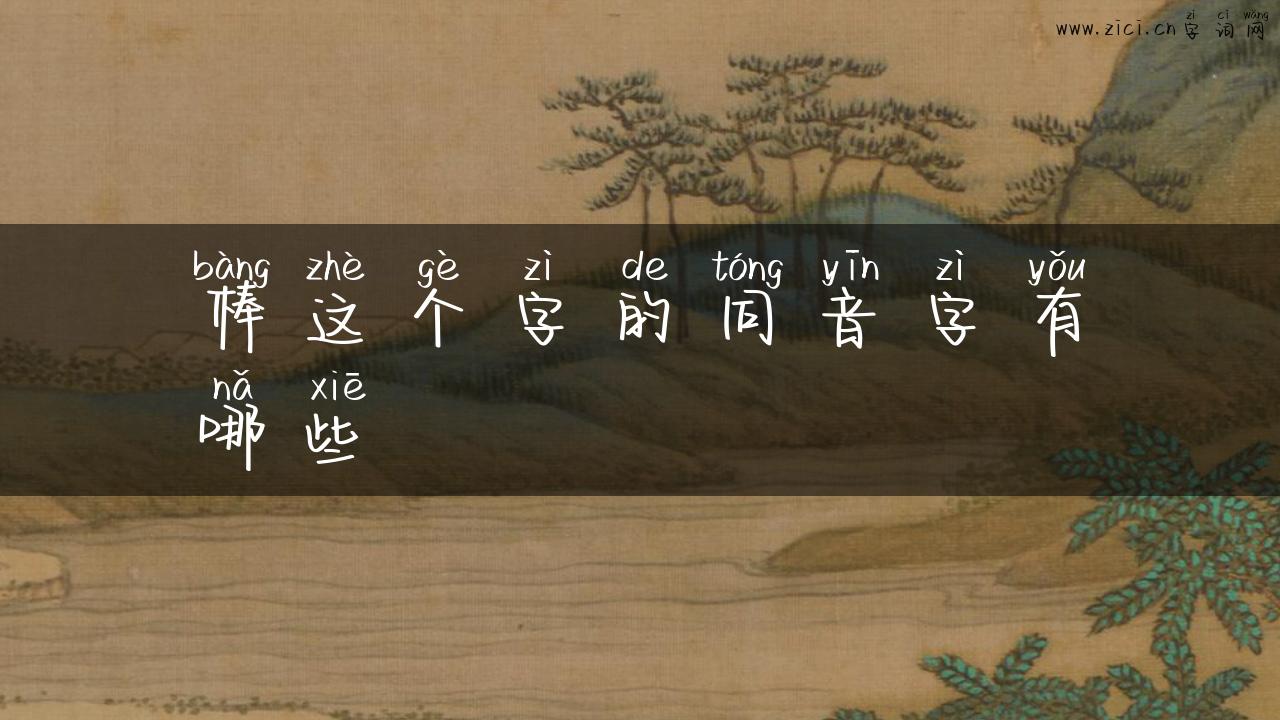 zì cí wǎng
www.zici.cn 字词网
bàng zhè gè zì de tóng yīn zì yǒu
棒这个字的同音字有
nǎ xiē
哪些